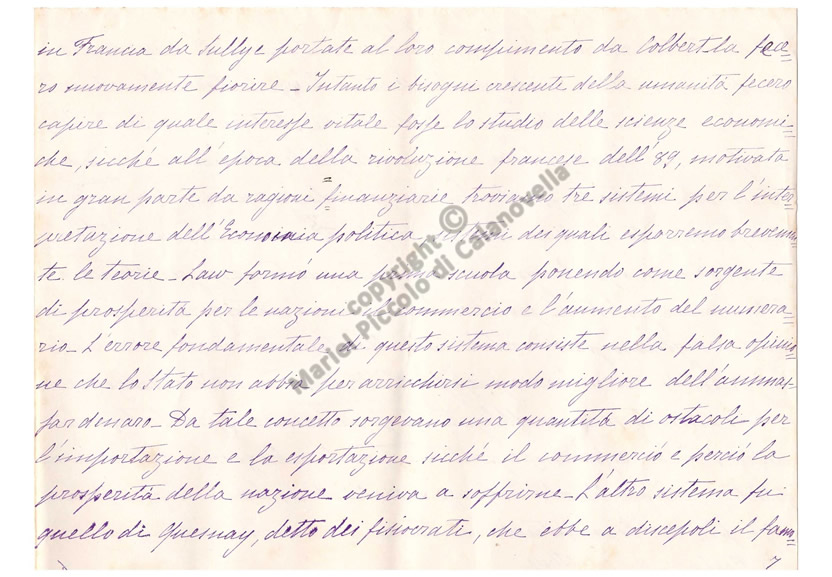 in Francia da Sullye portate al loro compimento da Colbert la fece=
ro nuovamente fiorire _ Intanto i bisogni crescente della umanità fecero
capire di quale interesse vitale fosse lo studio delle scienze economi=
che, sicché all'epoca della rivoluzione francese dell'89, motivata
in gran parte da ragioni finanziarie troviamo tre sistemi per l'inter=
pretazione dell'Economia politica, sistemi dei quali esporremo brevemen=
te le teorie _ Law formò una prima scuola ponendo come sorgente
di prosperità per le nazioni il commercio e l'aumento del numera=
rio _ L'errore fondamentale di questo sistema consiste nella falsa opinio=
ne che lo Stato non abbia per arricchirsi modo migliore dell'ammas=
sar denaro _ Da tale concetto sorgevano una quantità di ostacoli per
l'importazione e la esportazione sicché il commercio e perciò la
prosperità della nazione veniva a soffrirne _ L'altro sistema fu
quello di Quesnay, detto dei fisiocrati, che ebbe a discepoli il fam=
copyright ©
Mariel Piccolo di Calanovella